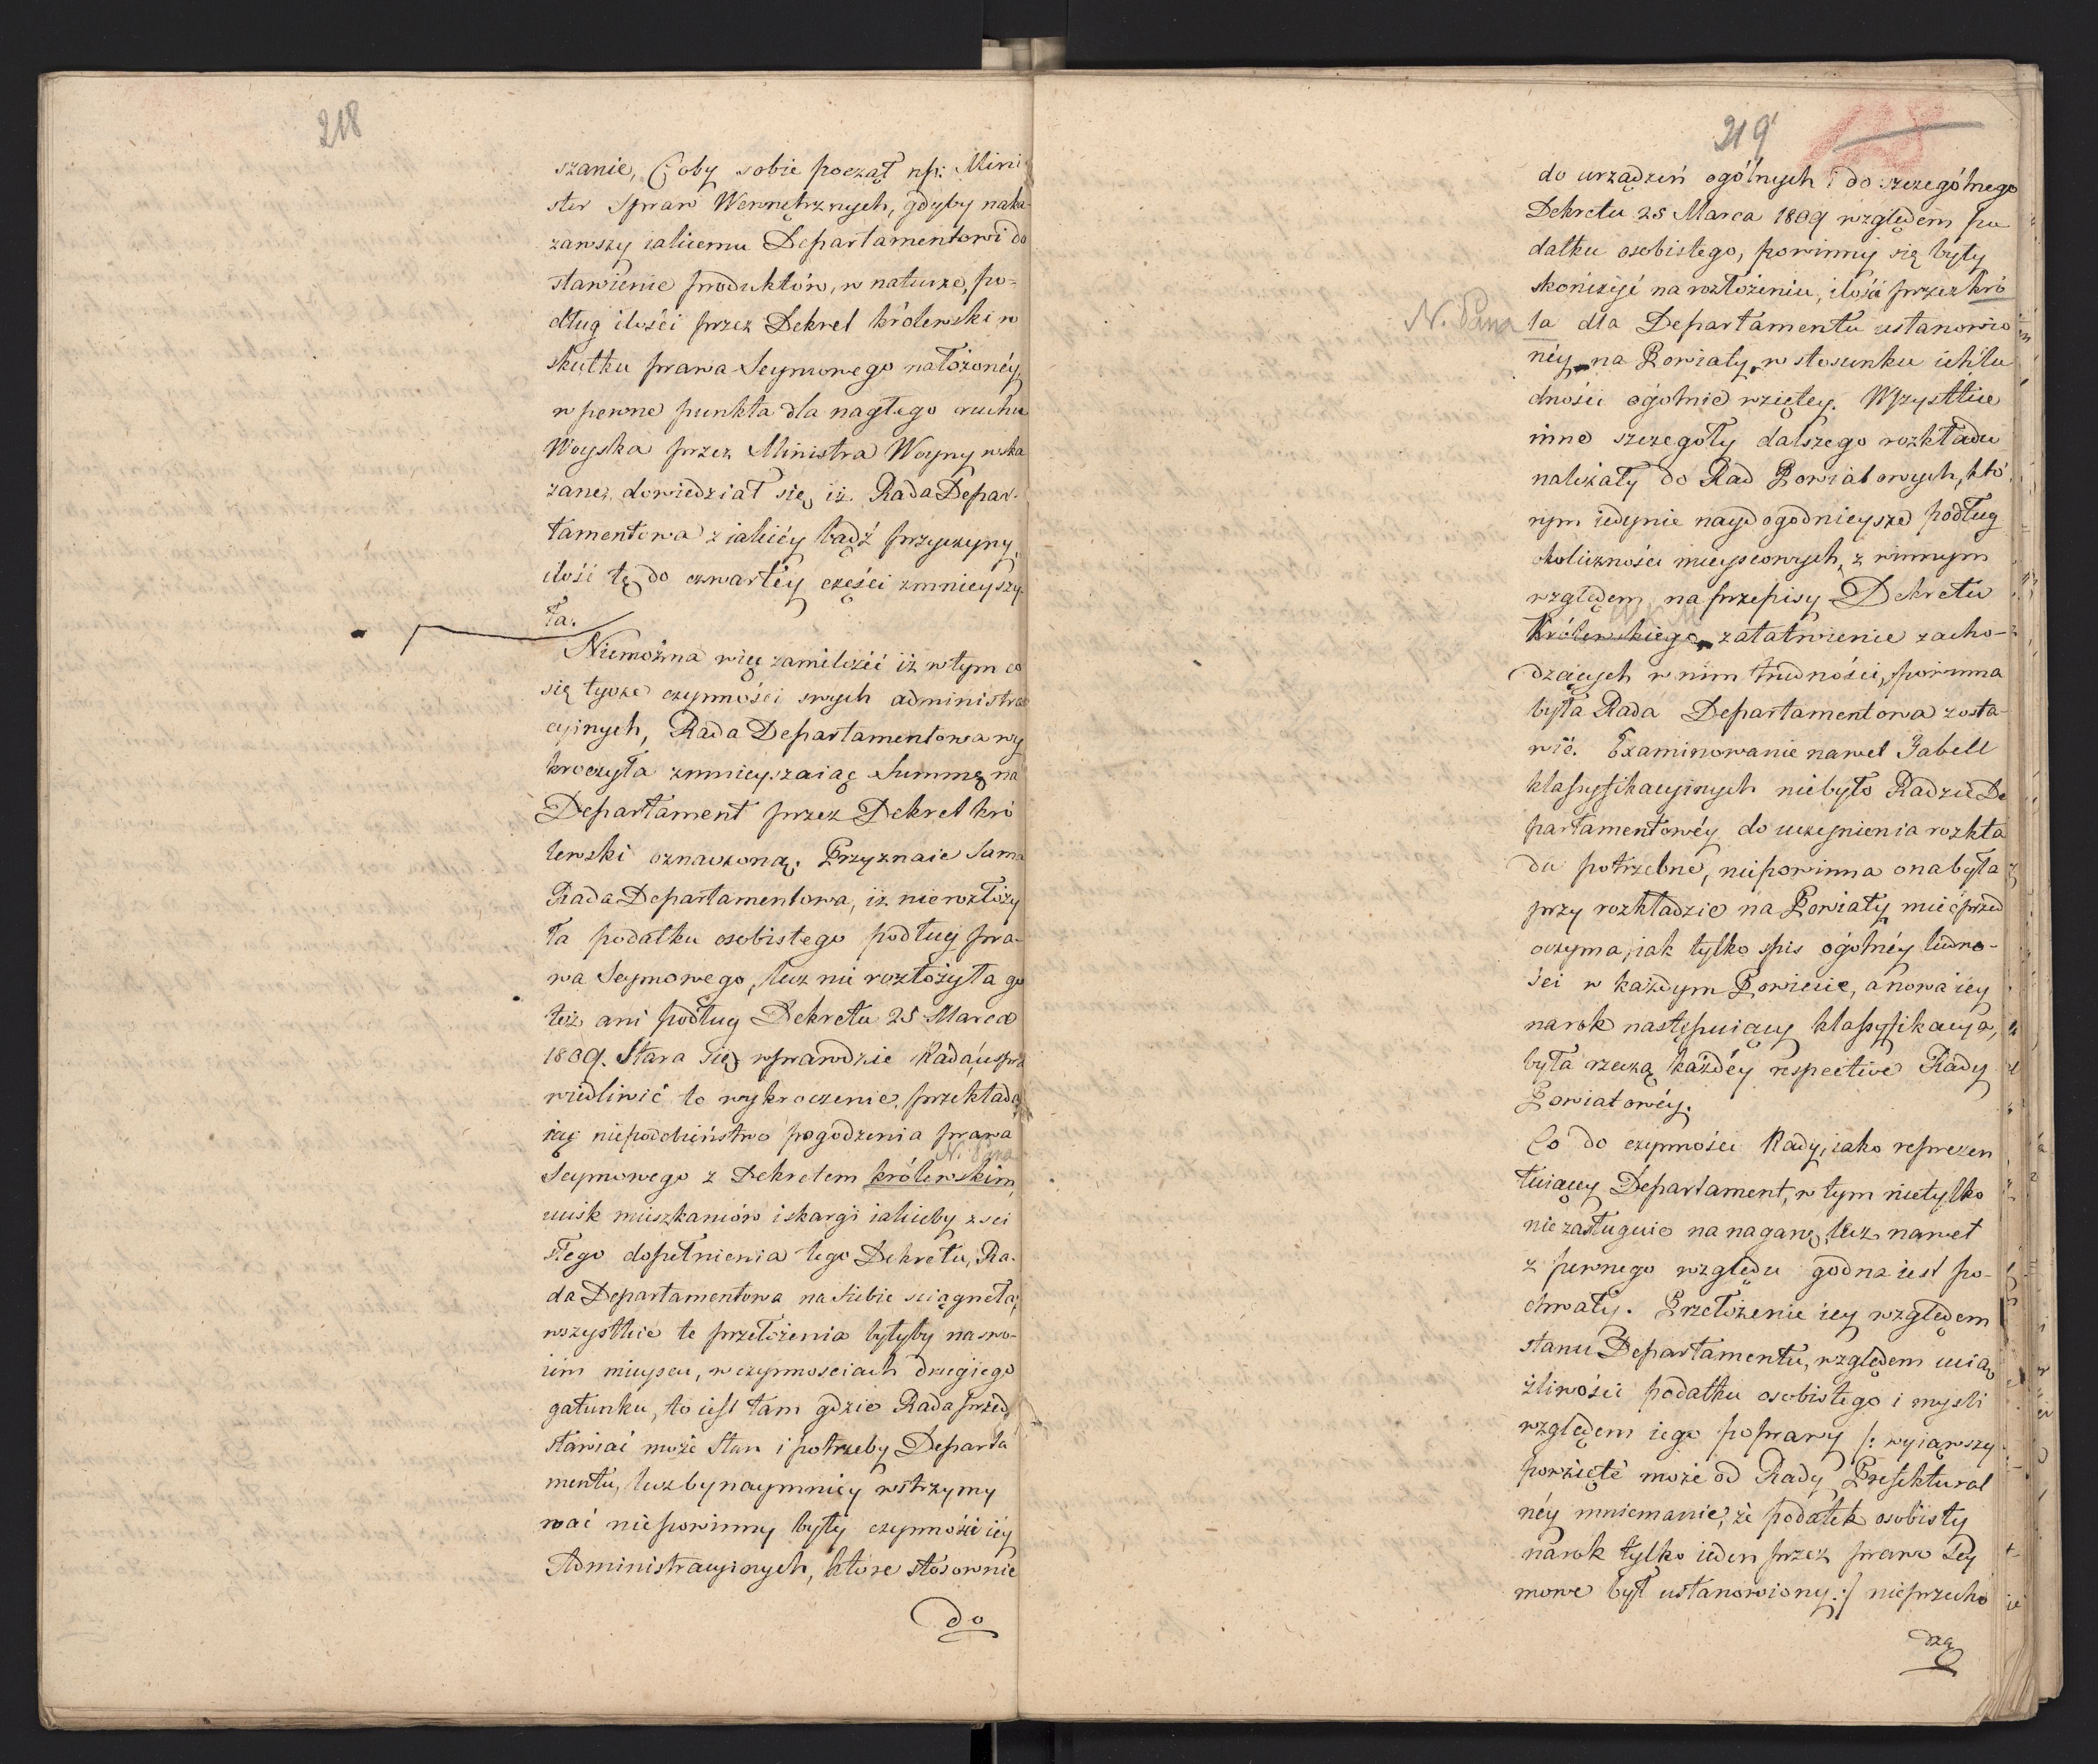 218
szanie, Coby sobie począł np: Mini
ster Spraw Wewnętrznych, gdyby naka-
zawszy iakiemu Departamentowi do
stawienie produktów, w naturze, po-
dług ilości przez Dekret królewski w
skutku prawa Seymowego nałożonéy,
w pewne punkta dla nagłego ruchu
Woyska przez Ministra Woyny wska
zane, dowiedział się, iż Rada Depar-
tamentowa z iakiéy bądź przyczyny,
ilość tę do czwartéy części zmnieyszy-
ła.
Niemożna więc zamilczéć iż w tym co
się tycze czynności swych administra
cyjnych, Rada Departamentowa wy
kroczyła zmnieyszaiąc Summę na
Departament przez Dekret kró
lewski oznaczoną. Przyznaie Sama
Rada Departamentowa, iż nierozłoży
ła podatku osobistego podług pra-
wa Seymowego, lecz nie rozłożyła go
też ani podług Dekretu 25 Marca
1809. Stara się wprawdzie Rada, uspra
wiedliwić to wykroczenie, przekłada
iąc niepodobieństwo pogodzenia prawa
N. Pana
Seymowego z Dekretem królewskim,
ucisk mieszkańców i skargi iakieby z sci
słego dopełnienia tego Dekretu, Ra-
da Departamentowa na Siebie sciągnęła,
wszystkie te przełożenia byłyby na swo-
iim mieyscu, w czynnosciach drugiego
gatunku, to iest tam gdzie Rada przed
stawiać może Stan i potrzeby Departa
mentu, lecz bynaymniéy wstrzymy
wać niepowinny były czynności iéy
Administracyinych, które stósownie
do
219
do urządzeń ogólnych i do szczególnego
Dekretu 25 Marca 1809 względem po
datku osobistego, powinny się były
skończyć na rozłożeniu, ilości przez kró
N. Pana
la dla Departamentu ustanowio
néy, na Powiaty, w stosunku ich lu
dności ogólnie wziętey. Wszystkie
inne szczegoły dalszego rozkładu
należały do Rad Powiatowych, któ
rym iedynie naydogodnieysze podług
okoliczności mieyscowych, z winnym
względem na przepisy Dekretu
Królewskiego, załatwienie zacho-
dzących w nim trudności, powinna
była Rada Departamentowa zosta-
wić. Examinowanie nawet Tabell
klassyfikacyinych niebyło Radzie De
partamentowéy do uczynienia rozkła
du potrzebne, niepowinna ona była
przy rozkładzie na Powiaty mieć przed
oczyma, iak tylko spis ogólnéy ludno-
ści w każdym Powiecie, a nowa iey
na rok następuiący klassyfikacya,
była rzeczą każdéy respective Rady
Powiatowéy.
Co do czynności Rady, iako reprezen
tuiącey Departament, w tym nietylko
nie zasługuie na naganę, lecz nawet
z pewnego względu godna iest po-
chwały. Przełożenie iey względem
stanu Departamentu, względem ucią
żliwości podatku osobistego i mysli
względem iego poprawy /: wyiąwszy
powzięté może od Rady Prefektural
néy mniemanie, że podatek osobisty
na rok tylko ieden przez prawo Sey
mowe był ustanowiony :/ nieprzecho
dzą